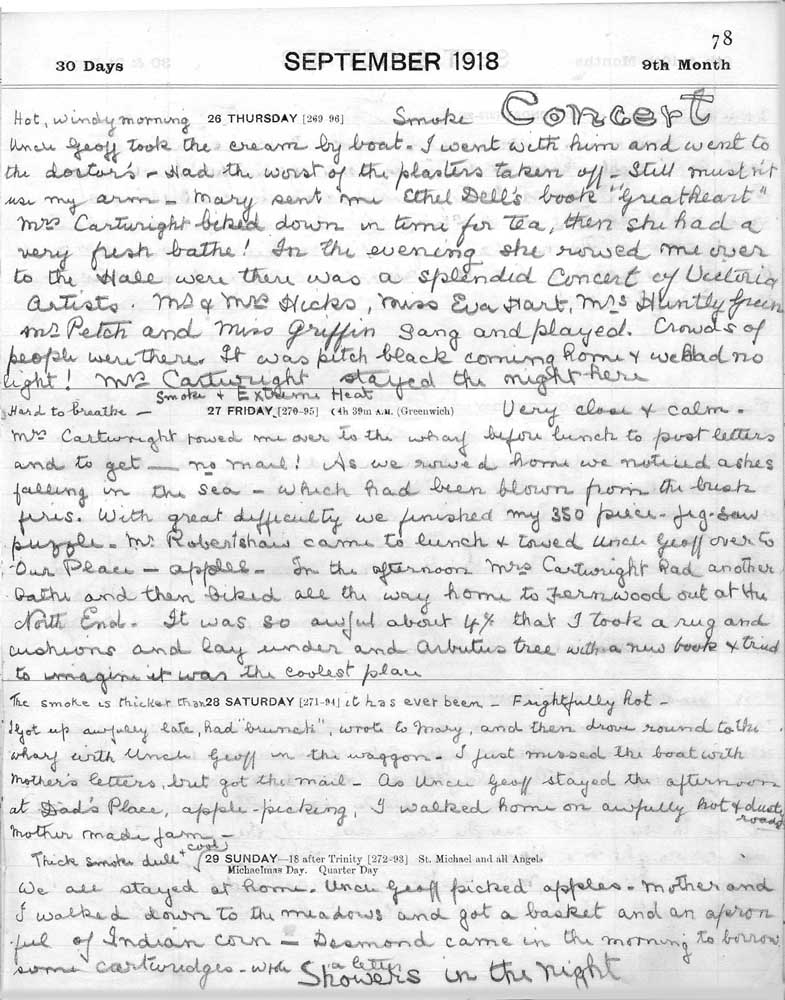 78
30 Days SEPTEMBER 1918 9th Month
Hot, windy morning 26 THURSDAY [269-96] Smoke Concert
Uncle Geoff took the cream by boat. I went with him and went to
the doctor's - Had the worst of the plasters taken off - Still mustn't
use my arm - Mary sent me Ethel Dell's book "Greatheart"
Mrs Cartwright biked down in time for tea, then she had a
very fresh bathe! In the evening she rowed me over
to the Hall were there was a splendid Concert by Victoria
Artists. Mr & Mrs Hicks, Miss Eva Hart, Mrs Huntly Green
Mr Petch and Miss Griffin sang and played. Crowds of
people were there. It was pitch black coming home & we had no
light! Mrs Cartwright stayed the night here
Smoke & Extreme Heat
Hard to breathe - 27 FRIDAY [270-95] (4h 39m A.M. (Greenwich) Very close & calm.
Mrs Cartwright rowed me over to the wharf before lunch to post letters
and to get — no mail! As we rowed home we noticed ashes
falling in the sea - which had been blown from the bush
fires. With great difficulty we finished my 350 piece jig-saw
puzzle. Mr Robertshaw came to lunch & towed Uncle Geoff over to
Our Place - apples - In the afternoon Mrs Cartwright had another
bathe and then biked all the way home to Fernwood out at the
North End. It was so awful about 4 that I took a rug and
cushions and lay under and Arbutus tree with a new book & tried
to imagine it was the coolest place
The smoke is thicker than 28 SATURDAY [271-94] it has ever been - Frightfully hot -
I got up awfully late, had "brunch", wrote to Mary, and then drove round to the
wharf with Uncle Geoff in the waggon. I just missed the boat with
Mother's letters, but got the mail - As Uncle Geoff stayed the afternoon
at Dad's Place, apple-picking, I walked home on awfully hot & dusty
roads
Mother made jam -
Thick smoke dull & cool 29 SUNDAY—18 after Trinity [272-93] St. Michael and all Angels
Michaelmas Day. Quarter Day
We all stayed at home. Uncle Geoff picked apples. Mother and
I walked down to the meadows and got a basket and an apron
ful of Indian corn - Desmond came in the morning to borrow
some cartwridges - wrote a letter
Showers in the Night